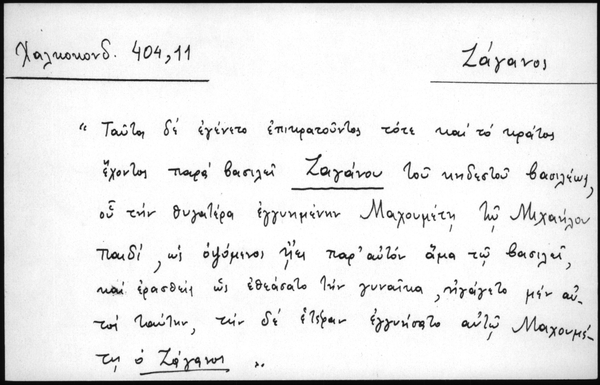 Χαλκοκονδ. 404,11
Ζάγανος
“ Ταῦτα δέ ἐγένετο ἐπικρατοῦντος τότε καί τό κράτος
ἔχοντος παρά βασιλεῖ Ζαγάνου τοῦ κηδεστοῦ βασιλέως,
οὗ τήν θυγατέρα ἐγγυημένην Μαχουμέτῃ τῷ Μιχαήλου
παιδί, ὡς ὀψόμενος ᾔει παρ' αὐτόν ἅμα τῷ βασιλεῖ,
καί ἐρασθείς ὡς ἐθεάσατο τήν γυναῖκα, ἠγάγετο μέν αὐ-
τοῦ ταύτην, τήν δέ ἑτέραν ἐγγυήσατο αὐτῷ Μαχουμέ-
τῃ ὁ Ζάγανος „